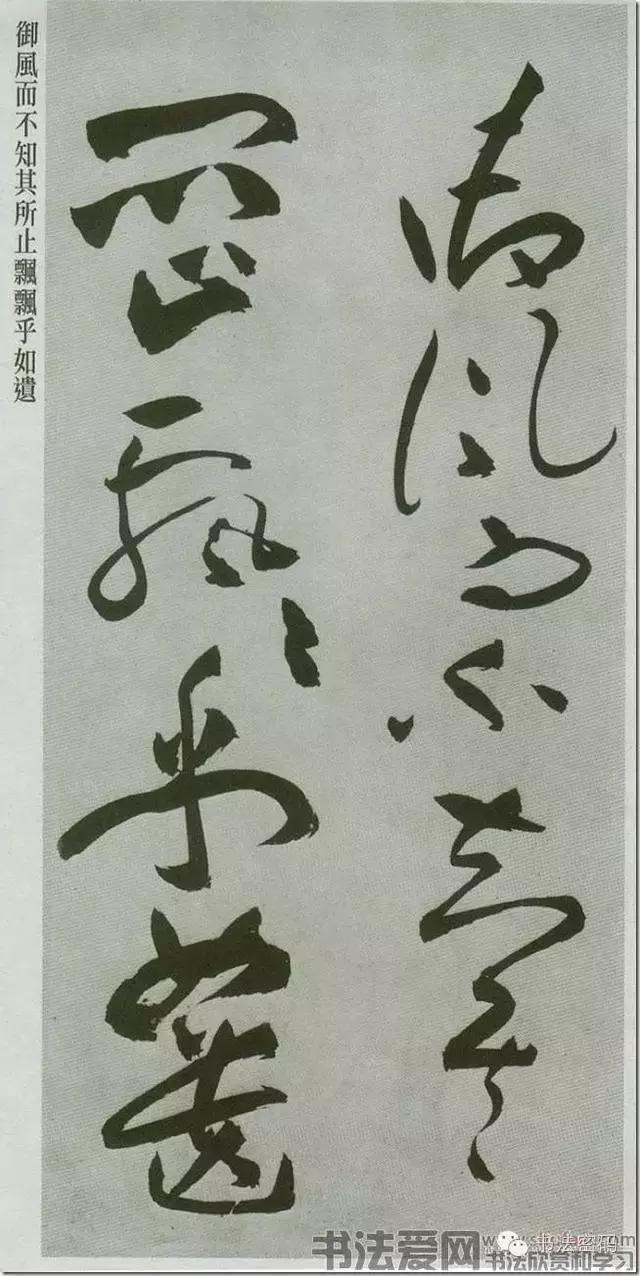 御風而不知其
所止飄〻乎如遺
御風而不知其所止飄飄乎如遺
书法爱网
书法密码
书法欣赏和学习